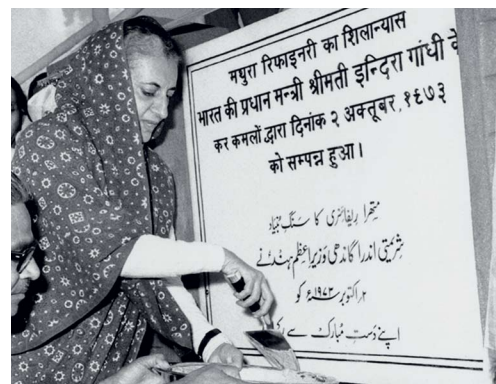 मथुरा रिफाइनरी का शिलान्यास
भारत की प्रधान मन्त्री श्रीमती इन्दिरा गांधी के
कर कमलों द्वारा दिनांक २ अक्तूबर, १९७३
को सम्पन्न हुआ।
متھرا ریفائنری کا سنگِ بنیاد
شریمتی اندرا گاندھی وزیراعظم ہند نے
۲ر اکتوبر ۱۹۷۳ء کو
اپنے دستِ مبارک سے